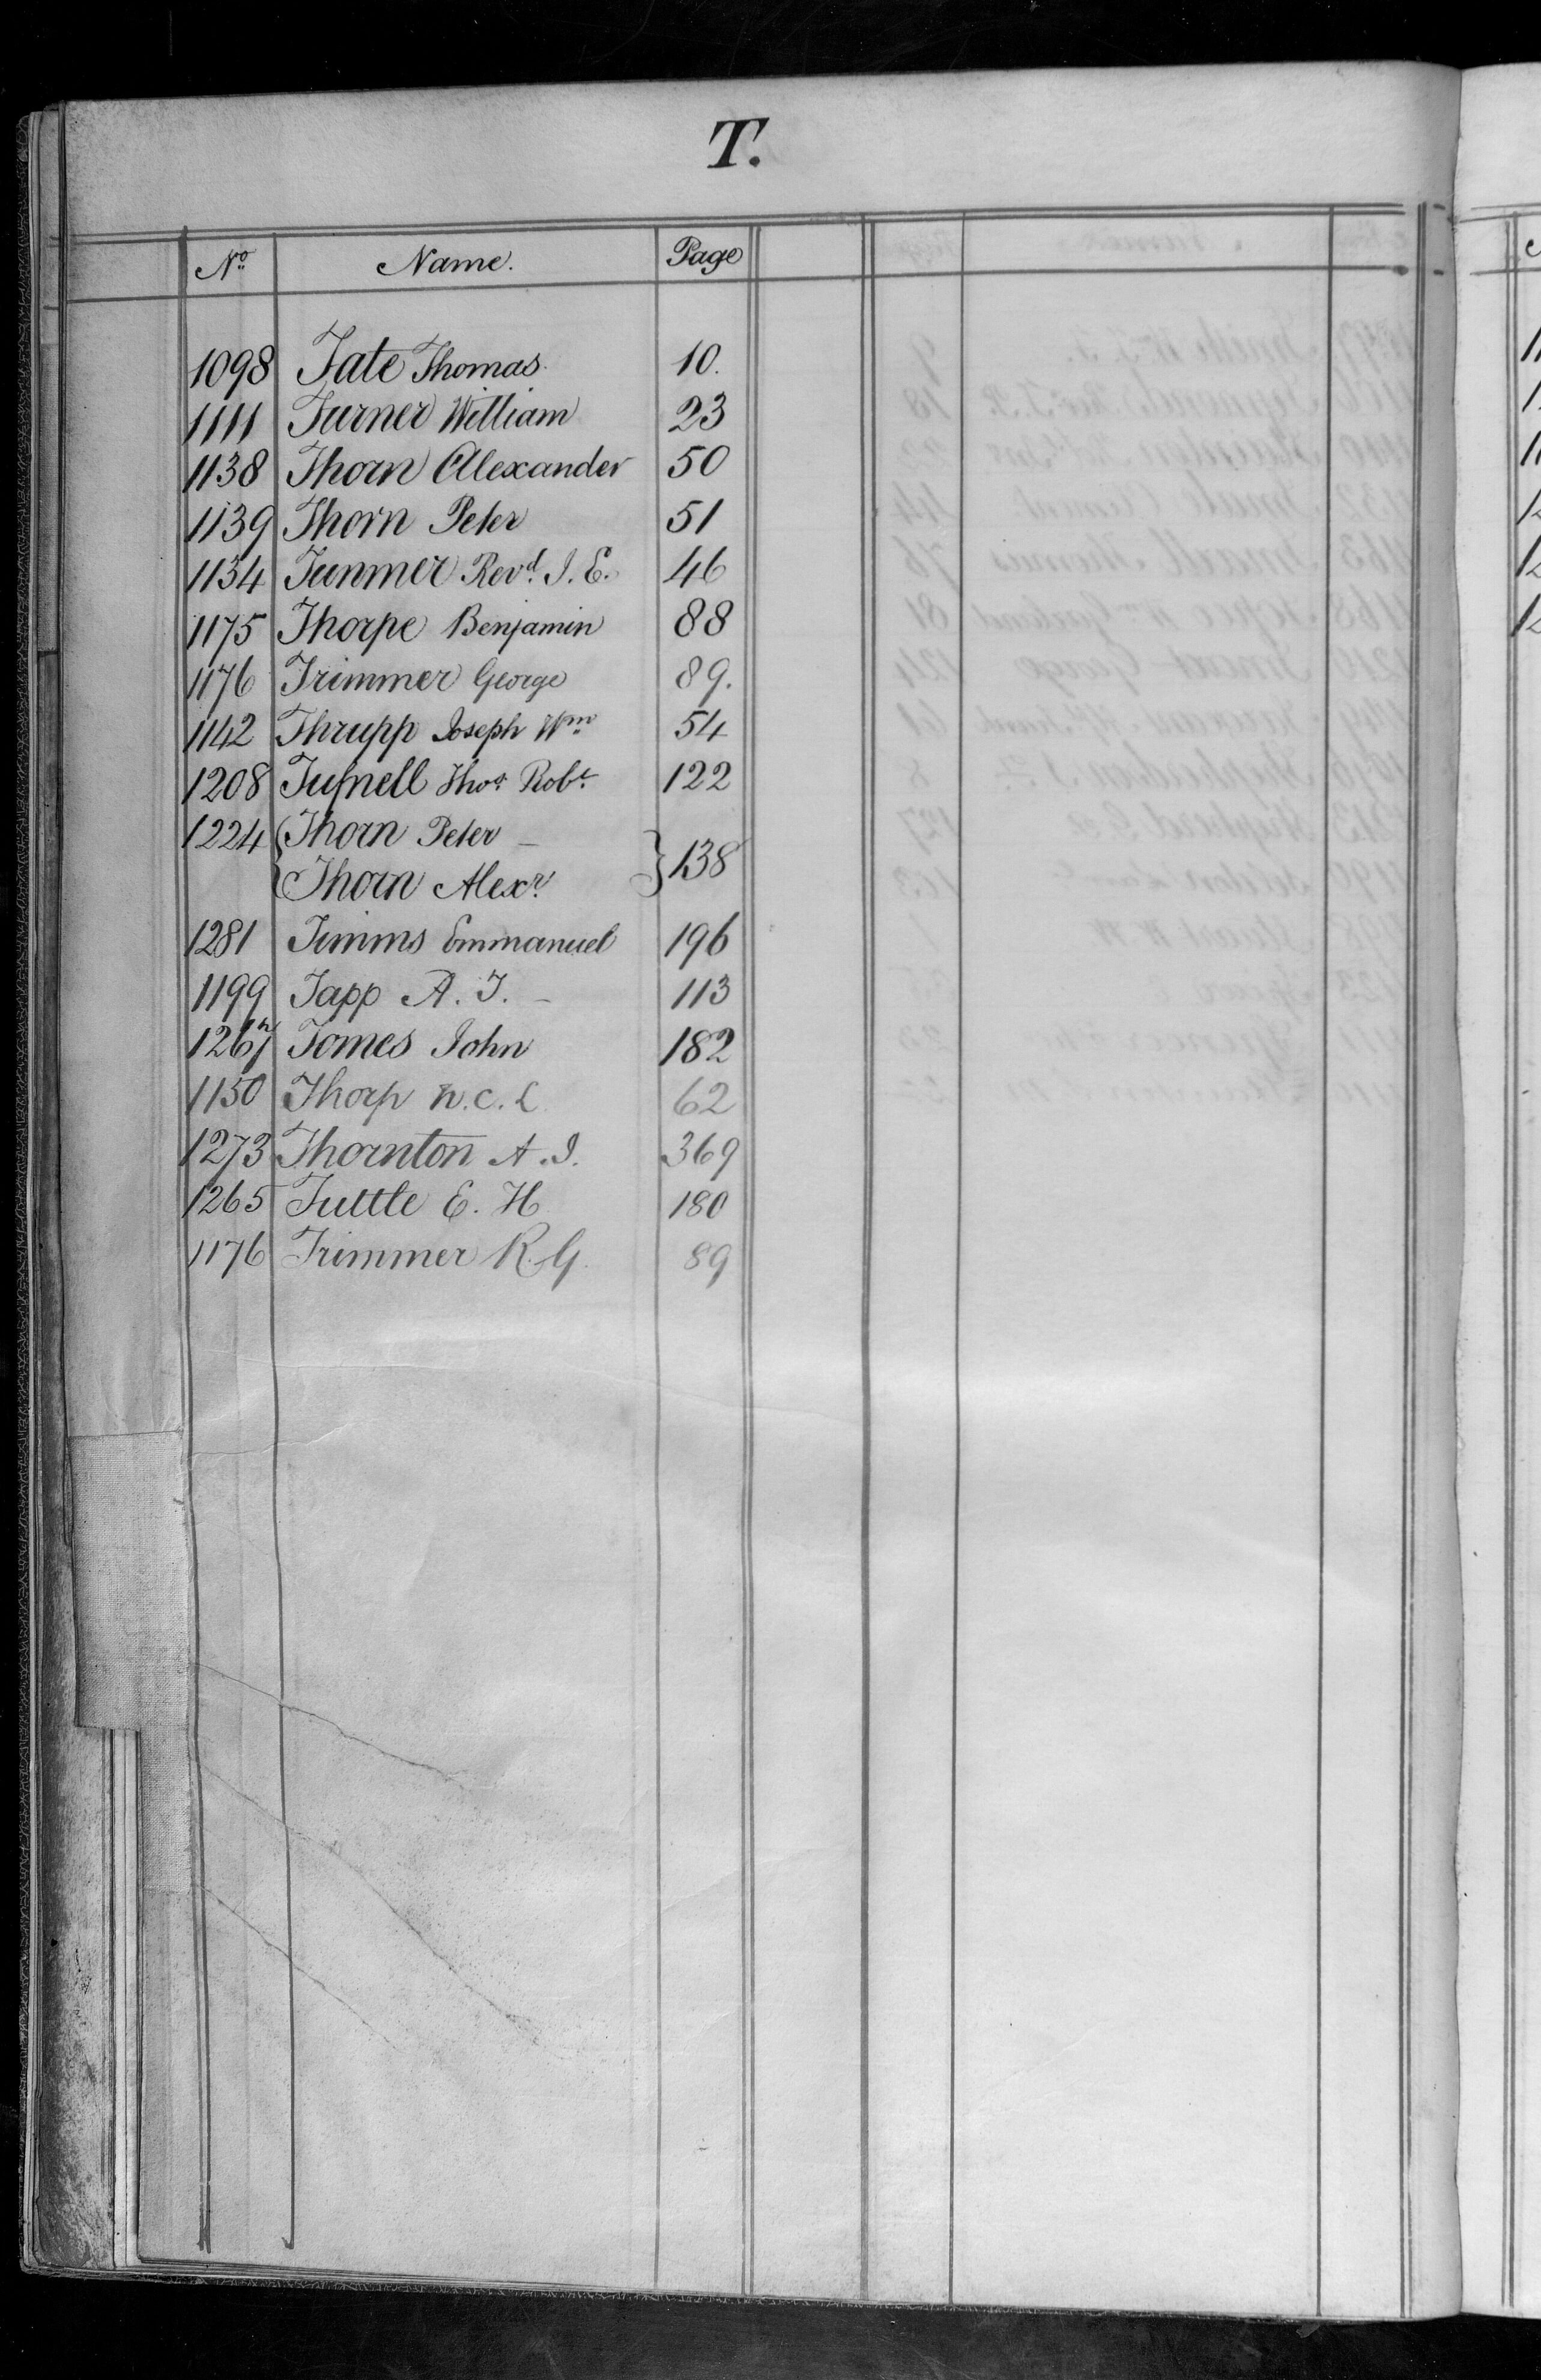 T.
No. Name. Page
1098 Tate Thomas. 10.
1111 Turner William 23
1138 Thorn Alexander 50
1139 Thorn Peter 51
1134 Tunmer Revd. J. E. 46
1175 Thorpe Benjamin 88
1176 Trimmer George 89.
1142 Thrupp Joseph Wm 54
1208 Tufnell Thos. Robt. 122
1224 { Thorn Peter – } 138
{ Thorn Alexr.
1281 Timms Emmanuel 196
1199 Tapp A. T. – 113
1267 Tomes John 182
1150 Thorp W. C. L 62
1273 Thornton A. J. 369
1265 Tuttle E. H 180
1176 Trimmer R. G. 89